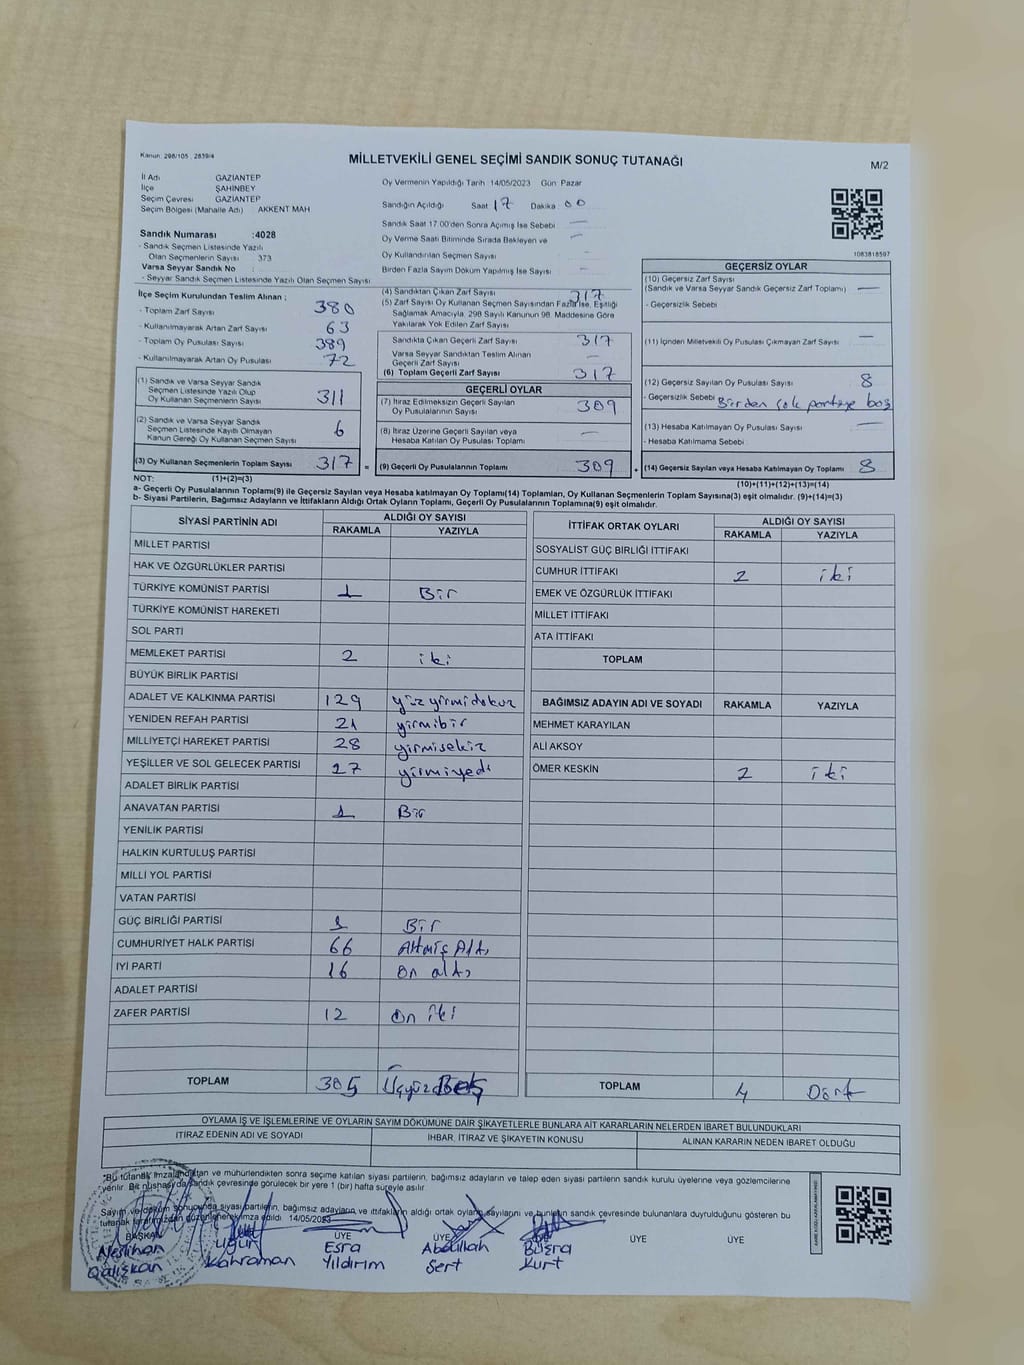 Kanun: 298/105 , 2839/4
MİLLETVEKİLİ GENEL SEÇİMİ SANDIK SONUÇ TUTANAĞI
M/2
İl Adı GAZİANTEP
İlçe ŞAHİNBEY
Seçim Çevresi GAZİANTEP
Seçim Bölgesi (Mahalle Adı) AKKENT MAH
Oy Vermenin Yapıldığı Tarih 14/05/2023 Gün Pazar
Sandığın Açıldığı Saat 17 Dakika 00
Sandık Saat 17.00'den Sonra Açımış İse Sebebi —
Oy Verme Saati Bitiminde Sırada Bekleyen ve —
Oy Kullandırılan Seçmen Sayısı —
Birden Fazla Sayım Döküm Yapılmış İse Sayısı —
Sandık Numarası :4028
- Sandık Seçmen Listesinde Yazılı
Olan Seçmenlerin Sayısı : 373
Varsa Seyyar Sandık No :
- Seyyar Sandık Seçmen Listesinde Yazılı Olan Seçmen Sayısı
1083818597
İlçe Seçim Kurulundan Teslim Alınan ;
- Toplam Zarf Sayısı 380
- Kullanılmayarak Artan Zarf Sayısı 63
- Toplam Oy Pusulası Sayısı 389
- Kullanılmayarak Artan Oy Pusulası 72
(1) Sandık ve Varsa Seyyar Sandık
Seçmen Listesinde Yazılı Olup
Oy Kullanan Seçmenlerin Sayısı 311
(2) Sandık ve Varsa Seyyar Sandık
Seçmen Listesinde Kayıtlı Olmayan
Kanun Gereği Oy Kullanan Seçmen Sayısı 6
(3) Oy Kullanan Seçmenlerin Toplam Sayısı 317 =
(4) Sandıktan Çıkan Zarf Sayısı 317
(5) Zarf Sayısı Oy Kullanan Seçmen Sayısından Fazla İse, Eşitliği
Sağlamak Amacıyla, 298 Sayılı Kanunun 98. Maddesine Göre
Yakılarak Yok Edilen Zarf Sayısı
Sandıkta Çıkan Geçerli Zarf Sayısı 317
Varsa Seyyar Sandıktan Teslim Alınan
Geçerli Zarf Sayısı —
(6) Toplam Geçerli Zarf Sayısı 317
GEÇERLİ OYLAR
(7) İtiraz Edilmeksizin Geçerli Sayılan
Oy Pusulalarının Sayısı 309
(8) İtiraz Üzerine Geçerli Sayılan veya
Hesaba Katılan Oy Pusulası Toplamı —
(9) Geçerli Oy Pusulalarının Toplamı 309 +
GEÇERSİZ OYLAR
(10) Geçersiz Zarf Sayısı
(Sandık ve Varsa Seyyar Sandık Geçersiz Zarf Toplamı) —
- Geçersizlik Sebebi
(11) İçinden Milletvekili Oy Pusulası Çıkmayan Zarf Sayısı —
(12) Geçersiz Sayılan Oy Pusulası Sayısı 8
- Geçersizlik Sebebi Birden çok partiye boş
(13) Hesaba Katılmayan Oy Pusulası Sayısı —
- Hesaba Katılmama Sebebi
(14) Geçersiz Sayılan veya Hesaba Katılmayan Oy Toplamı 8
NOT: (1)+(2)=(3) (10)+(11)+(12)+(13)=(14)
a- Geçerli Oy Pusulalarının Toplamı(9) ile Geçersiz Sayılan veya Hesaba katılmayan Oy Toplamı(14) Toplamları, Oy Kullanan Seçmenlerin Toplam Sayısına(3) eşit olmalıdır. (9)+(14)=(3)
b- Siyasi Partilerin, Bağımsız Adayların ve İttifakların Aldığı Ortak Oyların Toplamı, Geçerli Oy Pusulalarının Toplamına(9) eşit olmalıdır.
SİYASİ PARTİNİN ADI ALDIĞI OY SAYISI
RAKAMLA YAZIYLA
MİLLET PARTİSİ
HAK VE ÖZGÜRLÜKLER PARTİSİ
TÜRKİYE KOMÜNİST PARTİSİ 1 Bir
TÜRKİYE KOMÜNİST HAREKETİ
SOL PARTİ
MEMLEKET PARTİSİ 2 iki
BÜYÜK BİRLİK PARTİSİ
ADALET VE KALKINMA PARTİSİ 129 yüz yirmi dokuz
YENİDEN REFAH PARTİSİ 21 yirmibir
MİLLİYETÇİ HAREKET PARTİSİ 28 yirmisekiz
YEŞİLLER VE SOL GELECEK PARTİSİ 27 yirmiyedi
ADALET BİRLİK PARTİSİ
ANAVATAN PARTİSİ 1 Bir
YENİLİK PARTİSİ
HALKIN KURTULUŞ PARTİSİ
MİLLİ YOL PARTİSİ
VATAN PARTİSİ
GÜÇ BİRLİĞİ PARTİSİ 1 Bir
CUMHURİYET HALK PARTİSİ 66 Altmış Altı
İYİ PARTİ 16 On altı
ADALET PARTİSİ
ZAFER PARTİSİ 12 On iki
TOPLAM 305 Üçyüz Beş
İTTİFAK ORTAK OYLARI ALDIĞI OY SAYISI
RAKAMLA YAZIYLA
SOSYALİST GÜÇ BİRLİĞİ İTTİFAKI
CUMHUR İTTİFAKI 2 iki
EMEK VE ÖZGÜRLÜK İTTİFAKI
MİLLET İTTİFAKI
ATA İTTİFAKI
TOPLAM
BAĞIMSIZ ADAYIN ADI VE SOYADI RAKAMLA YAZIYLA
MEHMET KARAYILAN
ALİ AKSOY
ÖMER KESKİN 2 iki
TOPLAM 4 Dört
OYLAMA İŞ VE İŞLEMLERİNE VE OYLARIN SAYIM DÖKÜMÜNE DAİR ŞİKAYETLERLE BUNLARA AİT KARARLARIN NELERDEN İBARET BULUNDUKLARI
İTİRAZ EDENİN ADI VE SOYADI İHBAR, İTİRAZ VE ŞİKAYETİN KONUSU ALINAN KARARIN NEDEN İBARET OLDUĞU
"Bu tutanak imzalandıktan ve mühürlendikten sonra seçime katılan siyasi partilerin, bağımsız adayların ve talep eden siyasi partilerin sandık kurulu üyelerine veya gözlemcilerine
verilir. Bir nüshası da sandık çevresinde görülecek bir yere 1 (bir) hafta süreyle asılır.
Sayım ve döküm sonucunda siyasi partilerin, bağımsız adayların ve ittifakların aldığı ortak oyların sayılarını ve bunların sandık çevresinde bulunanlara duyrulduğunu gösteren bu
tutanak tarafımızdan düzenlenerek imza edildi. 14/05/2023
BAŞKAN ÜYE ÜYE ÜYE ÜYE
Neslihan Uğur Esra Abdullah Büşra
Çalışkan Kahraman Yıldırım Sert Kurt